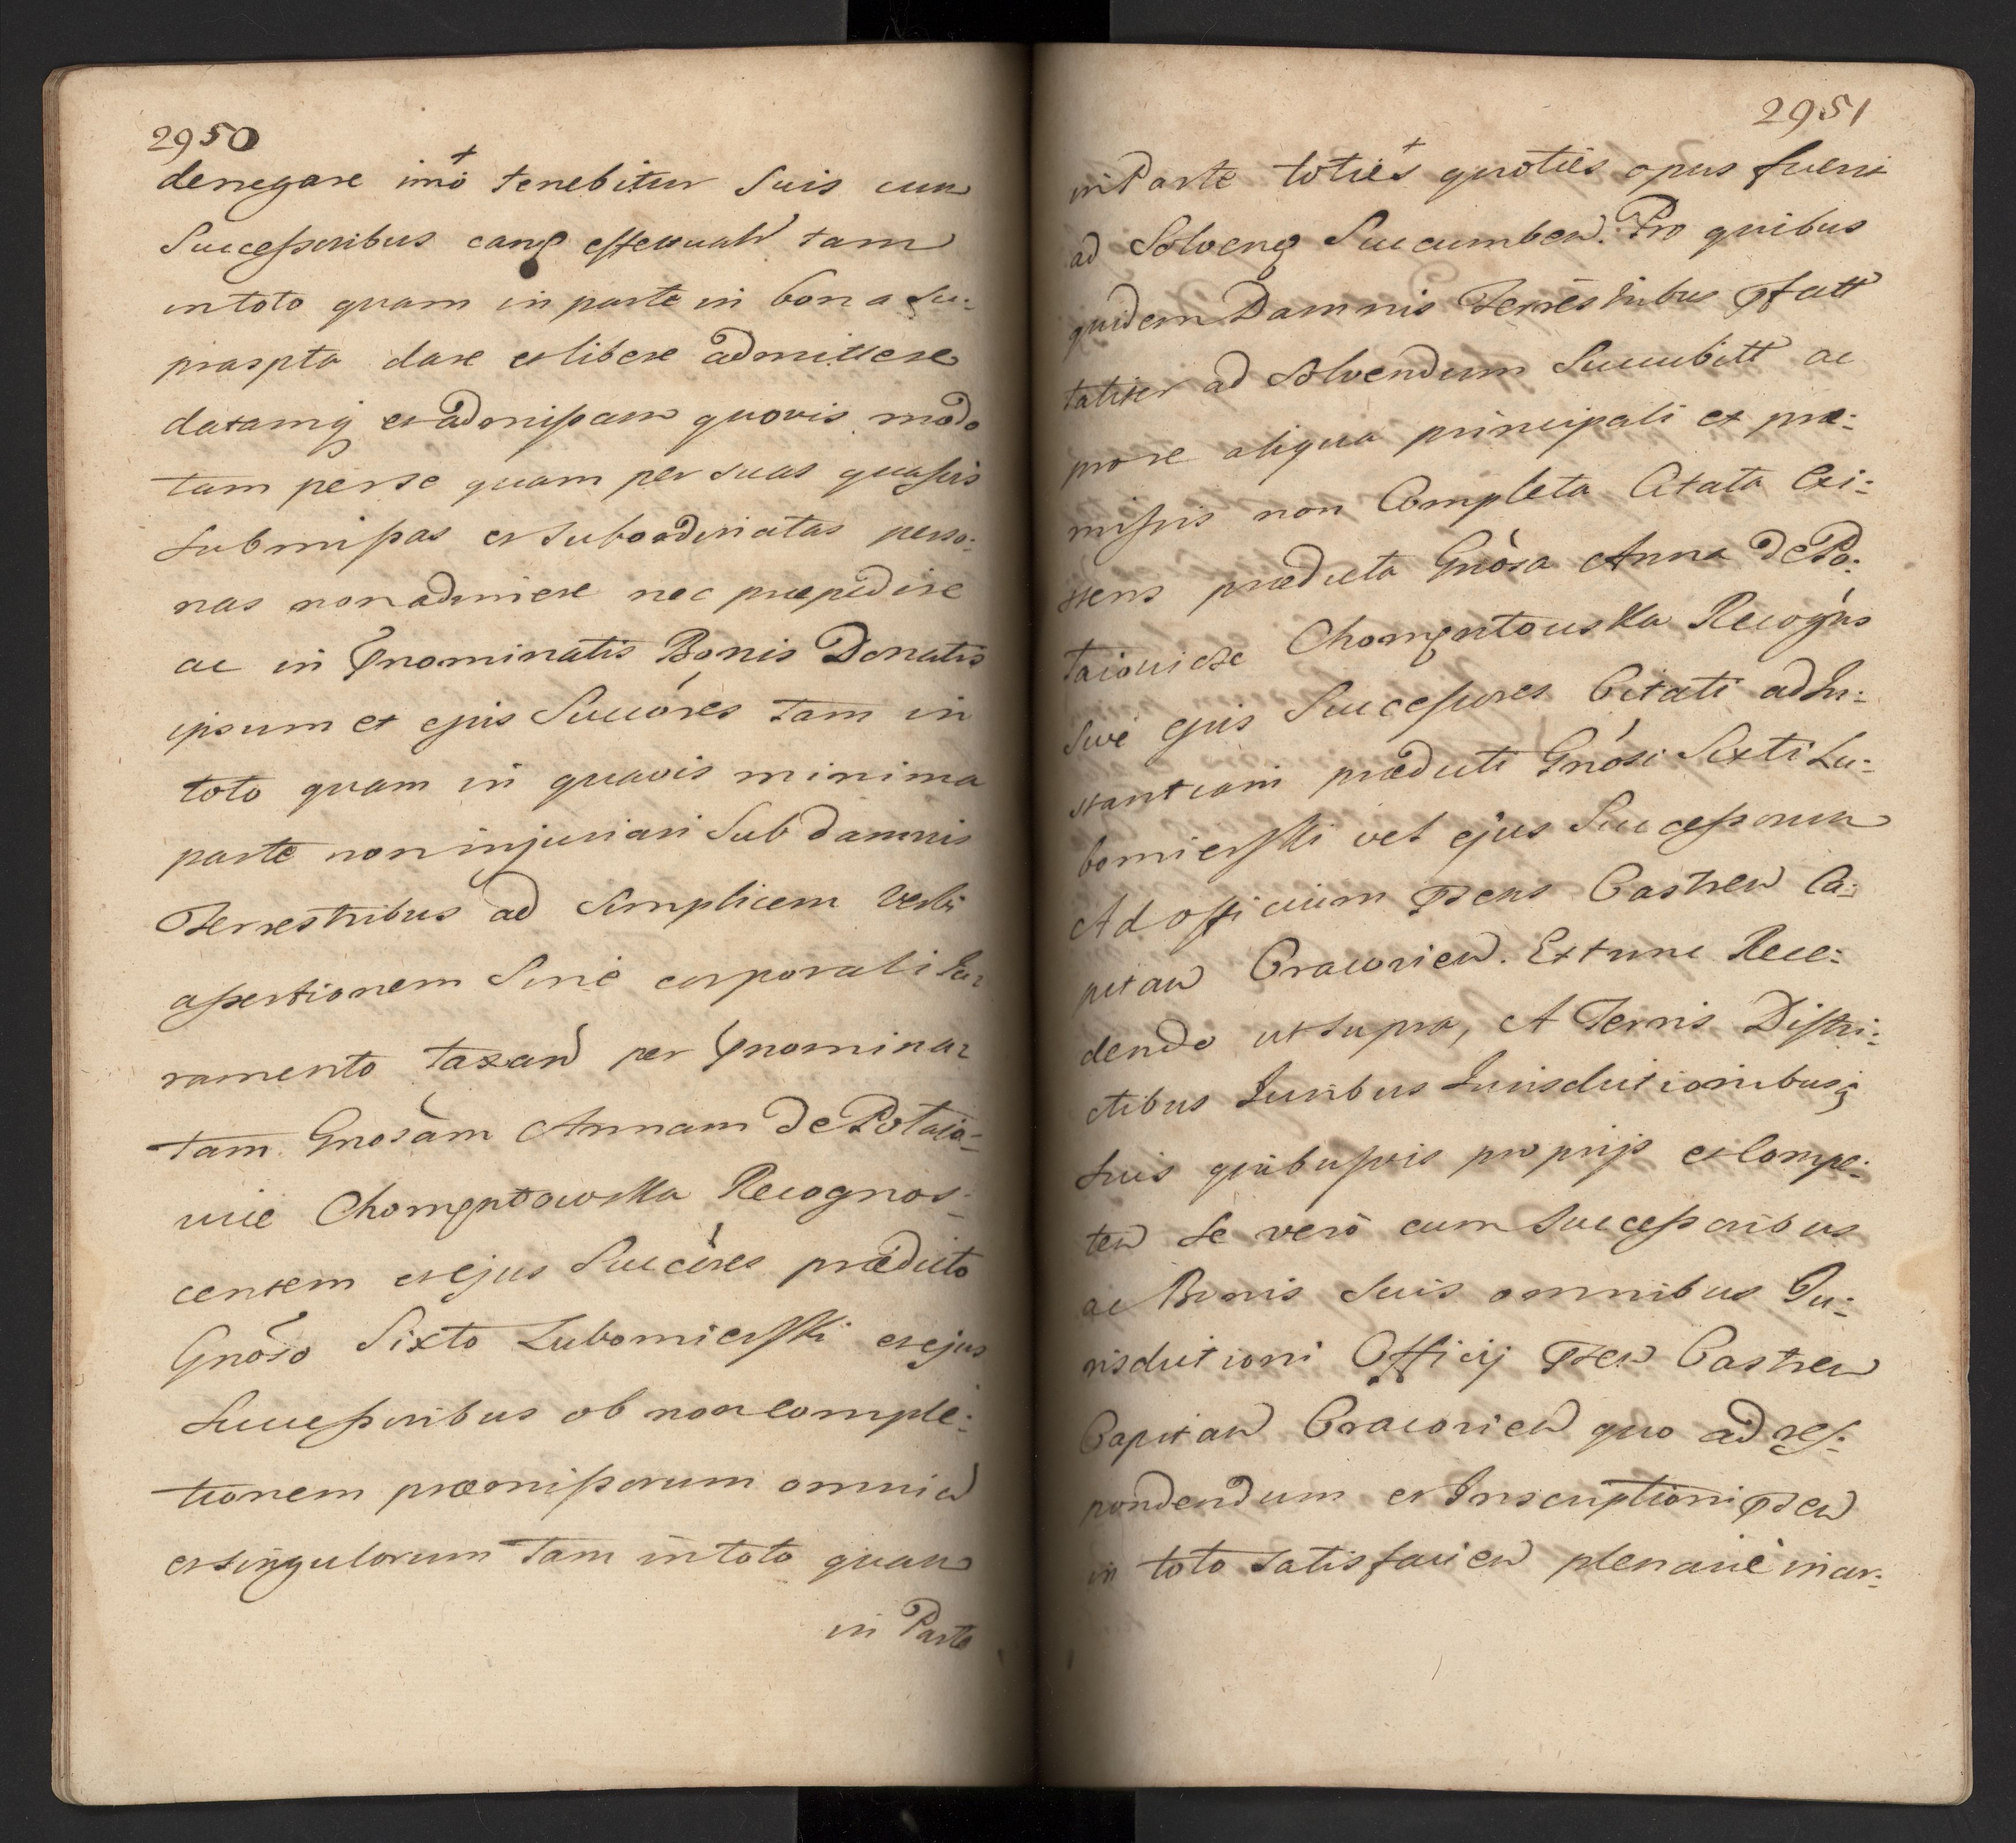 2950
denegare imò tenebitur suis cum
Successoribus eamq effectuald tam
in toto quam in parte in bona su:
prascpta dare et libere admittere
datamq et admissam quovis modo
tam per se quam per suas quasvis
submissas et subordinatas perso:
nas non adimere nec præpedire
ac in pnominatis Bonis Donatis
ipsum et ejus Succóres tam in
toto quam in quavis minima
parte non injuriari sub damnis
Terrestribus ad simplicem verbi
assertionem sine corporali Ju:
ramento taxand per pnomina:
tam Gnosam Annam de Potaio:
wie Chomentowska Recognos:
centem et ejus Succóres prædicto
Gnoso Sixto Lubomierski et ejus
Successoribus ob non comple:
tionem præmissorum omnium
et singulorum tam in toto quam
in Parte
2951
in Parte toties quoties opus fuerit
ad solvend Succumben. Pro quibus
quidem Damnis Terrestribus pfatt
taliter ad solvendum Succubitt ac
pro re aliqua principali et præ:
missis non Completa Citata Exi:
stens prædicta Gnosa Anna de Po:
taiowicze Chomentouska Recogns
sive ejus Successores Citati ad In:
stantiam prædicti Gnosi Sixti Lu:
bomierski vel ejus Successorum
Ad officium psens Castren Ca:
pitan Cracovien. Extunc Rece:
dendo ut supra, A Terris Distri:
ctibus Juribus Jurisdictionibusq
suis quibusvis proprijs et Compe:
ten se verò cum successoribus
ac Bonis suis omnibus Ju:
risdictioni Officij psen Castren
Capitan Cracovien quo ad res:
pondendum et Inscriptioni psen
in toto satisfacien plenarie incor: